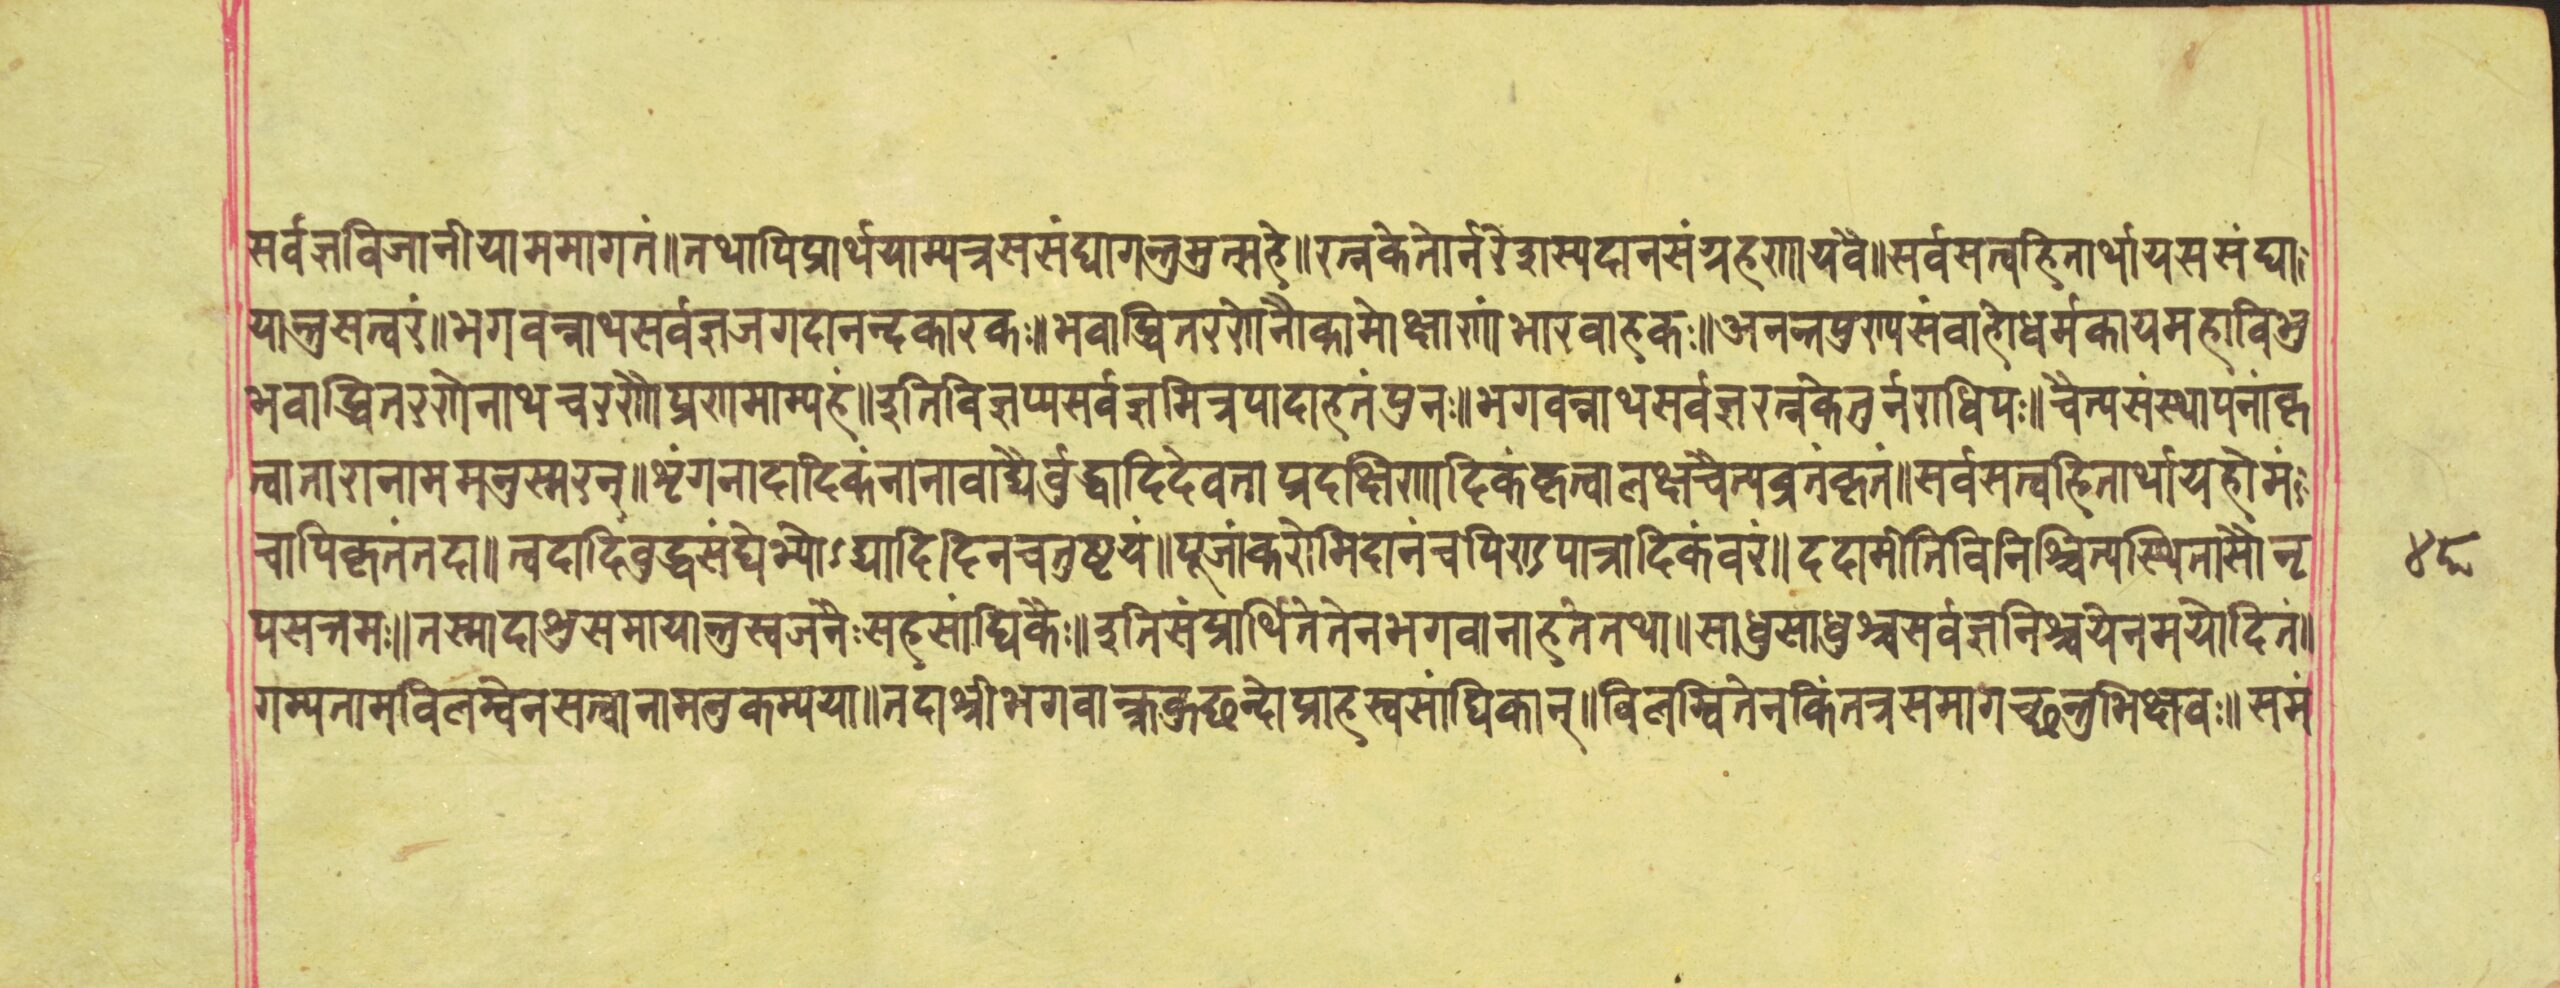 सर्वज्ञविजानीयाममागतं॥तथापिप्रार्थयाम्यत्रससंघ्यागन्तुमुत्सहे॥रत्नकेतोर्नरेंद्रास्यदानसंग्रहणायवै॥सर्वसत्वहितार्थायससंघाः
यान्तुसत्वरं॥भगवन्नाथसर्वज्ञजगदानन्दकारकः॥भवाब्धितरणेनौकामोक्षाणांभारवाहकः॥अनन्तपुण्यसंवाहोधर्मकायमहाविभु
भवाब्धितरणीनाथचरणौप्रणमाम्यहं॥इतिविज्ञप्यसर्वज्ञमित्रपादाहतंपुनः॥भगवन्नाथसर्वज्ञरत्नकेतुर्नराधिपः॥चैत्यसंस्थापनांकृ
त्वातारानाममनुस्मरन्॥शृंगनादादिकंनानावाद्यैर्वुद्धादिदेवता प्रदक्षिणादिकंकृत्वालक्षचैत्यव्रतंकृतं॥सर्वसत्वहितार्थायहोमंः
चापिकृतंतदा॥त्वदादिंवुद्धसंघेभ्योऽद्यादिदिनचतुष्टयं॥पूजांकरोमिदानंचपिण्डपात्रादिकंवरं॥ददामीतिविनिश्चित्यस्थितासौनृ
पसत्तमः॥तस्मादाशुसमायान्तुस्वजनैःसहसांघिकैः॥इतिसंप्रार्थितेतेनभगवानाहतंतथा॥साधुसाधुश्चसर्वज्ञनिश्चयेनमयोदितं॥
गम्यतामविलम्वेनसत्वानामनुकम्पया॥तदाश्रीभगवान्क्रकुछन्दोप्राहस्वसांघिकान्॥विलम्वितेनकिंतत्रसमागच्छन्तुभिक्षवः॥समं